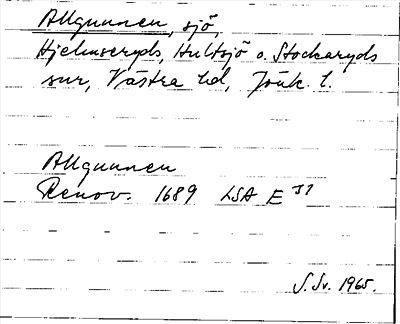 Allgunnen, sjö,
Hjelmseryds, Hultsjö o. Stockaryds
snr, Västra hd, Jönk. l.
Allgunnen
Renov. 1689 LSA E 37
S. Sv. 1965.